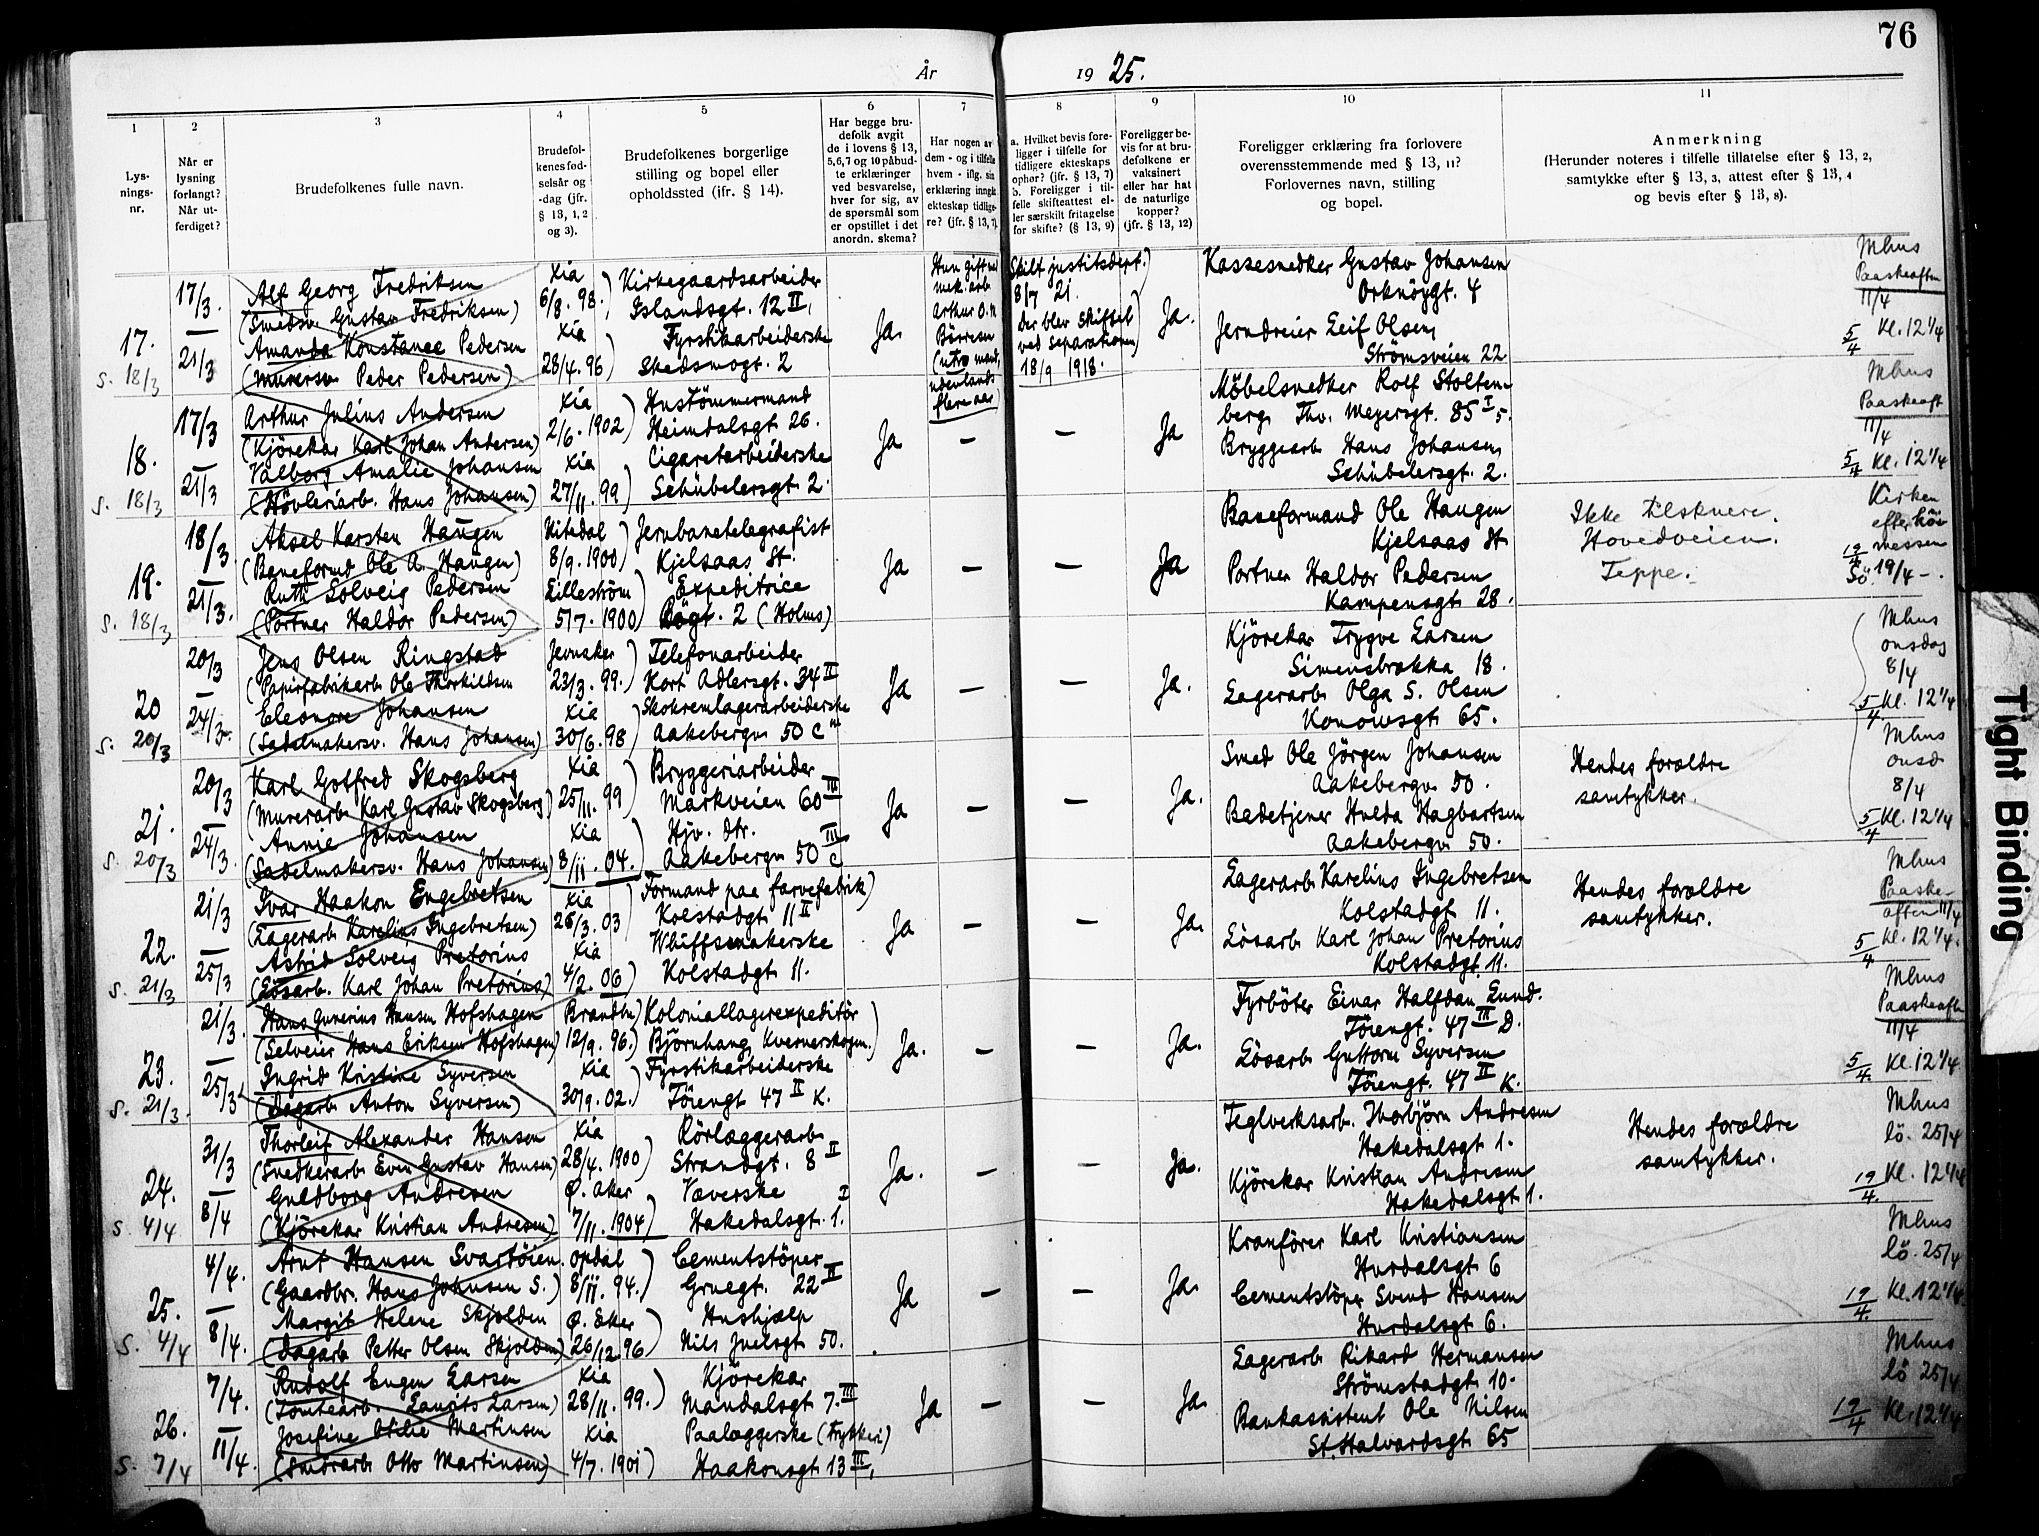 76
År 1925.
1
Lys-
nings-
nr.
2
Når er
lysning
forlangt?
Når ut-
ferdiget?
3
Brudefolkenes fulle navn.
4
Brudefol-
kenes fød-
selsår og
-dag (jfr.
§ 13, 1, 2
og 3).
5
Brudefolkenes borgerlige
stilling og bopel eller
opholdssted (jfr. § 14).
6
Har begge bru-
defolk avgit
de i lovens § 13,
5, 6, 7 og 10 påbud-
te erklæringer
ved besvarelse,
hver for sig, av
de spørsmål som
er opstillet i det
anordn. skema?
7
Har nogen av
dem - og i tilfelle
hvem - iflg. sin
erklæring inngåt
ekteskap tidlige-
re? (jfr. § 13, 7).
8
a. Hvilket bevis fore-
ligger i tilfelle for
tidligere ekteskaps
ophør? (jfr. § 13, 7)
b. Foreligger i til-
felle skifteattest el-
ler særskilt fritagelse
for skifte? (§ 13, 9)
9
Foreligger be-
vis for at bru-
defolkene er
vaksinert
eller har hat
de naturlige
kopper?
(jfr. § 13, 12)
10
Foreligger erklæring fra forlovere
overensstemmende med § 13, 11?
Forlovernes navn, stilling
og bopel.
11
Anmerkning
(Herunder noteres i tilfelle tillatelse efter § 13, 2,
samtykke efter § 13, 3, attest efter § 13, 4
og bevis efter § 13, 8).
17.
S. 18/3
17/3
21/3
Alf Georg Fredriksen
(Smedsv. Gustav Fredriksen)
Amanda Konstance Pedersen
(Murersv. Peder Pedersen)
Kia
6/8. 98.
Kia
28/4. 96
Kirkegaardsarbeider
Islandsgt. 12 II,
Fyrstikarbeiderske
Skedsmogt. 2
Ja.
Hun gift med
mek. arb.
Arthur O. M.
Børresen
(utro mand,
udenlands
flere aar)
Skilt justitsdept.
8/7 21.
Der blev skiftet
ved separationen
18/9 1918.
Ja.
Kassesnedker Gustav Johansen
Orknöygt. 4
Jerndreier Leif Olsen,
Strömsveien 22
Mhus
Paaskeaften
11/4
5/4 Kl. 12 1/4
18.
S. 18/3
17/3
21/3
Arthur Julius Andersen
(Kjörekar Karl Johan Andersen)
Valborg Amalie Johansen
(Hövleriarb. Hans Johansen)
Kia
2/6. 1902
Kia
27/11. 99
Hustömmermand
Heimdalsgt. 26.
Cigaretarbeiderske
Schübelersgt. 2.
Ja
—
—
Ja
Möbelsnedker Rolf Stolten-
berg Thv. Meyersgt. 85 I 5.
Bryggearb. Hans Johansen,
Schübelersgt. 2.
Mhus
Paaskeaft
11/4
5/4 Kl. 12 1/4
19.
S. 18/3
18/3
21/3.
Aksel Karsten Haugen
(Baneformd Ole A. Haugen)
Ruth Solveig Pedersen
(Portner Haldor Pedersen)
Nitedal
8/9. 1900
Lilleström
5/7. 1900
Jernbanetelegrafist
Kjelsaas St.
Expeditrice
Bögt. 2 (Holms)
Ja
—
—
Ja
Baneformand Ole Haugen
Kjelsaas St
Portner Haldor Pedersen
Kampensgt 28.
Ikke tilsknere.
Hovedveien.
Teppe.
Kirken
efter höi
messen
19/4
Sö. 19/4 —.
20
S. 20/3
20/3
24/3.
Jens Olsen Ringstad
(Papirfabrikarb. Ole Thorkildsen
Eleonore Johansen
(Sadelmakersv. Hans Johansen)
Jevnaker
23/3. 99.
Kia
30/6. 98
Telefonarbeider
Kort Adlersgt. 34 II
Skokremlagerarbeiderske
Aakebergv. 50 c III
Ja
—
—
Ja.
Kjörekar Trygve Larsen
Simensbrækka 18.
Lagerarb. Olga S. Olsen
Konowsgt. 65.
Mhus
onsdag
8/4
5/4 Kl. 12 1/4
21.
S. 20/3
20/3
24/3.
Karl Gotfred Skogsberg
(Murerarb. Karl Gustav Skogsberg)
Annie Johansen
(Sadelmakersv. Hans Johansen)
Kia
25/11. 99
Kia
8/11. 04.
Bryggeriarbeider
Markveien 60 III
Hjv. dtr.
Aakebergv. 50 c III
Ja
—
—
Ja.
Smed Ole Jörgen Johansen
Aakebergv. 50.
Badetjener Hulda Hagbartsen
Aakebergv. 50.
Hendes forældre
samtykker.
Mhus
onsd.
8/4
5/4 Kl. 12 1/4
22.
S. 21/3
21/3
25/3
Ivar Haakon Engebretsen
(Lagerarb. Karelius Ingebretsen)
Astrid Solveig Pretorius
(Lösarb. Karl Johan Pretorius)
Kia
26/3. 03
Kia
4/2. 06
Formand paa farvefabrik)
Kolstadgt. 11 II
Whuffsmakerske
Kolstadgt. 11.
Ja
—
—
Ja.
Lagerarb. Karelius Ingebretsen
Kolstadgt. 11.
Lösarb. Karl Johan Pretorius
Kolstadgt. 11.
Hendes forældre
samtykker.
Mhus
Paaske-
aften 11/4
5/4 Kl. 12 1/4.
23.
S. 21/3.
21/3.
25/3
Hans Guverius Hansen Hofshagen
(Selveier Hans Eriksen Hofshagen)
Ingrid Kristine Syversen
(Dagarb. Anton Syversen)
Brandbu
12/9. 96.
Kia
30/9. 02.
Koloniallagerexpeditör
Björnhaug Kvernerskogen.
Fyrstikarbeiderske
Töiengt 47 II K.
Ja.
—
—
Ja.
Fyrböter Einar Halfdan Lund.
Töiengt. 47 III D.
Lösarb. Guttorm Syversen
Töiengt. 47 II K.
Mhus
Paaskeaften
11/4
5/4. Kl. 12 1/4.
24.
S 4/4
31/3
8/4
Thorleif Alexander Hansen
(Snedkerarb. Even Gustav Hansen)
Guldborg Andresen
(Kjörekar Kristian Andresen)
Kia
28/4. 1900
Ø. Aker
7/11. 1904
Rörlæggerarb.
Strandgt. 8 II
Væverske
Hakedalsgt. 1. I
Ja.
—
—
Ja.
Teglverksarb. Thorbjörn Andresen
Hakedalsgt 1.
Kjörekar Kristian Andresen
Hakedalsgt 1.
Hendes forældre
samtykker.
Mhus
lö. 25/4
19/4. Kl. 12 1/4
25.
S. 4/4
4/4.
8/4.
Arnt Hansen Svartöien
(Gaardbr. Hans Johnsen S.)
Margit Helene Skjolden
(Dagarb. Petter Olsen Skjolden)
Opdal
8/11. 94.
Ø. Eker
26/12. 96
Cementstöper
Gruegt. 22 II
Hushjælp
Nils Juelsgt 50.
Ja
—
—
Ja.
Kranförer Karl Kristiansen
Hurdalsgt 6
Cementstöper Svend Hansen
Hurdalsgt 6.
Mhus
lö. 25/4
19/4. Kl. 12 1/4
26.
S. 7/4
7/4.
11/4.
Rudolf Eugen Larsen
(Tomtearb. Lauritz Larsen)
Josefine Otilie Martinsen
(Smörarb. Otto Martinsen)
Kia
28/11. 99.
Kia
4/7. 1901
Kjörekar
Mandalsgt 7. III
Paalæggerske (Trykkeri)
Haakonsgt 13 III,
Ja
—
—
Ja.
Lagerarb. Rikard Hermansen
Strömstadgt 10.
Bankassistent Ole Nilsen
St. Halvardsgt 65
Mhus
lö 25/4
19/4 Kl. 12 1/4
Tight Binding